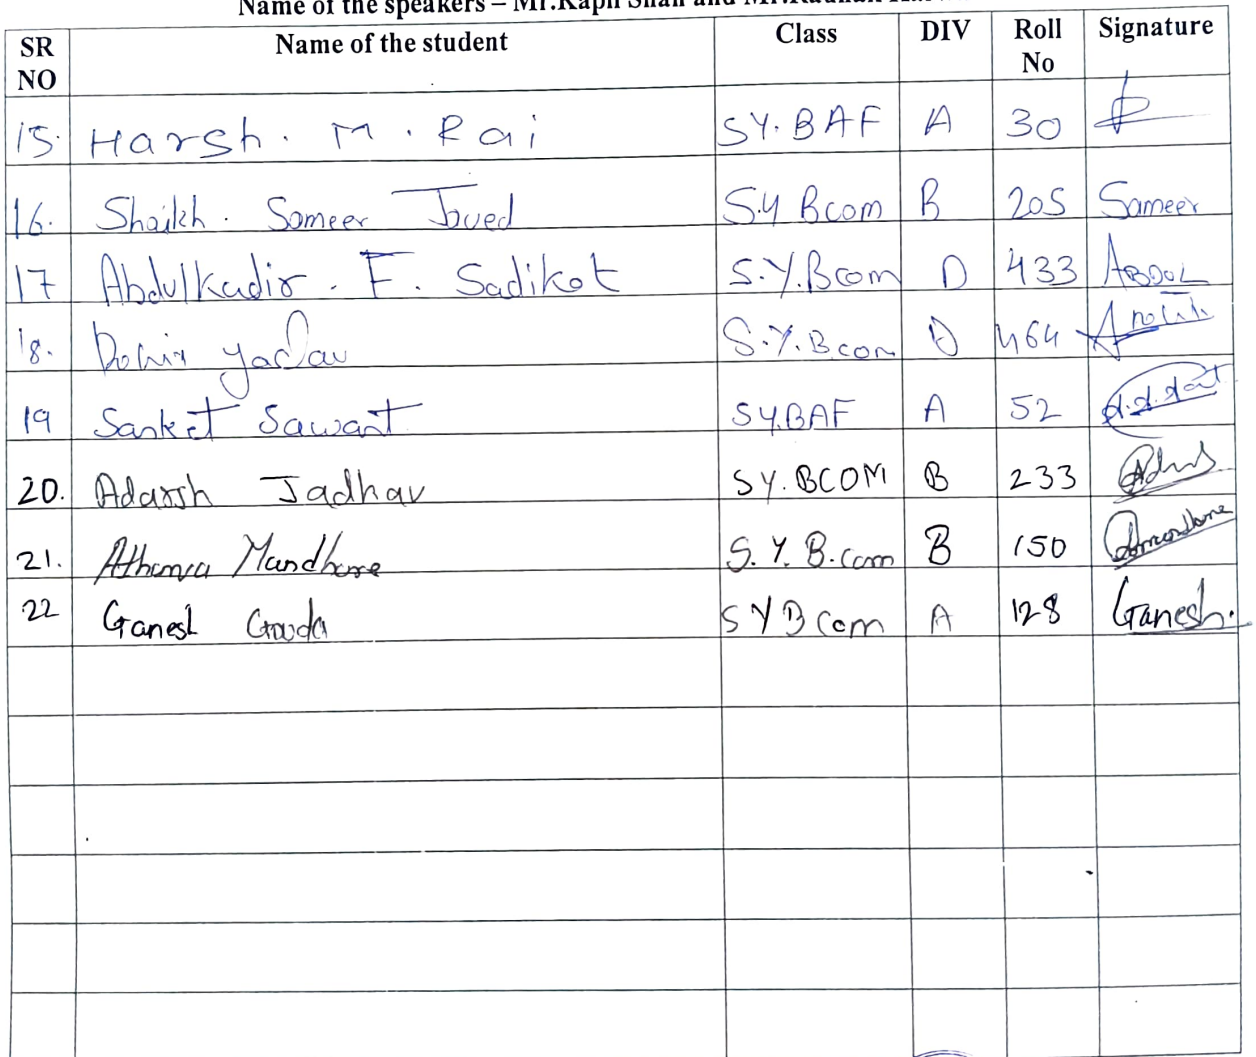 Name of the speakers – Mr.Kapil Shah and Mr.
SR NO Name of the student Class DIV Roll No Signature
15. Harsh. M. Rai SY. BAF A 30
16. Shaikh. Sameer Javed S.Y Bcom B 205 Sameer
17 Abdulkadir. F. Sadikot S.Y.Bcom D 433 ABDUL
18. Yadav S.Y.Bcom D 464
19 Sanket Sawant SY.BAF A 52
20. Adarsh Jadhav SY.BCOM B 233
21. Atharva Mandhare S.Y.B.com B 150
22 Ganesh Gouda SYBcom A 128 Ganesh.